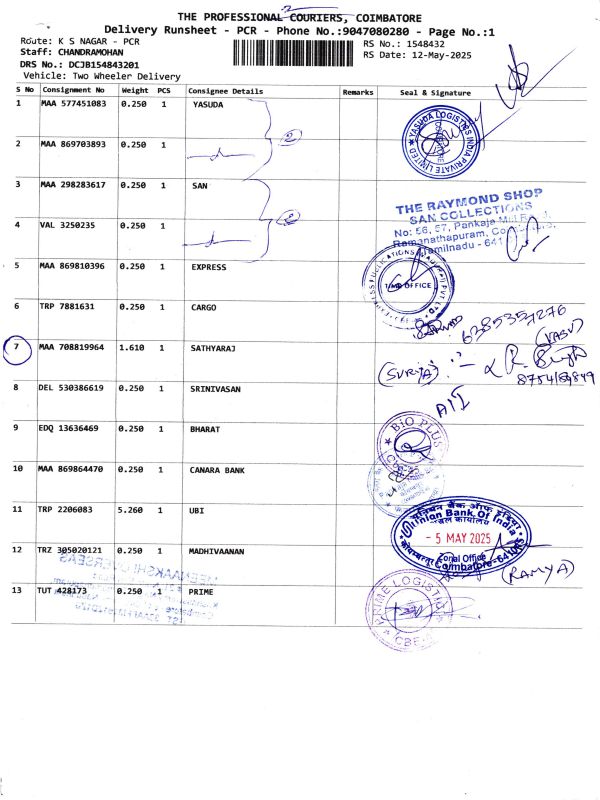 THE PROFESSIONAL COURIERS, COIMBATORE
Delivery Runsheet - PCR - Phone No.:9047080280 - Page No.:1
Route: K S NAGAR - PCR
RS No.: 1548432
Staff: CHANDRAMOHAN
RS Date: 12-May-2025
DRS No.: DCJB154843201
Vehicle: Two Wheeler Delivery
S No Consignment No Weight PCS Consignee Details Remarks Seal & Signature
1 MAA 577451083 0.250 1 YASUDA
YASUDA LOGISTICS INDIA PRIVATE LIMITED
COIMBATORE
2 MAA 869703893 0.250 1
2
3 MAA 298283617 0.250 1 SAN
THE RAYMOND SHOP
SAN COLLECTIONS
No: 56, 57, Pankaja Mill Road,
Ramanathapuram,
Tamilnadu - 641
4 VAL 3250235 0.250 1
2
5 MAA 869810396 0.250 1 EXPRESS
TIME OFFICE
6 TRP 7881631 0.250 1 CARGO
6385357276
(VASU)
7 MAA 708819964 1.610 1 SATHYARAJ
(SURYA)
8754189849
8 DEL 530386619 0.250 1 SRINIVASAN
9 EDQ 13636469 0.250 1 BHARAT
BIO PLUS
10 MAA 869864470 0.250 1 CANARA BANK
11 TRP 2206083 5.260 1 UBI
यूनियन बैंक ऑफ इंडिया
Union Bank Of India
- 5 MAY 2025
Zonal Office
Coimbatore-641
12 TRZ 305020121 0.250 1 MADHIVAANAN
(RAMYA)
MEENAAKSHI OVERSEAS
13 TUT 428173 0.250 1 PRIME
PRIME LOGISTICS
CBE